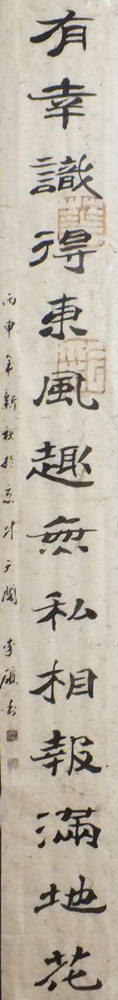 有幸識得東風趣無私相報滿地花
丙申年新秋於京州天閣李碩書